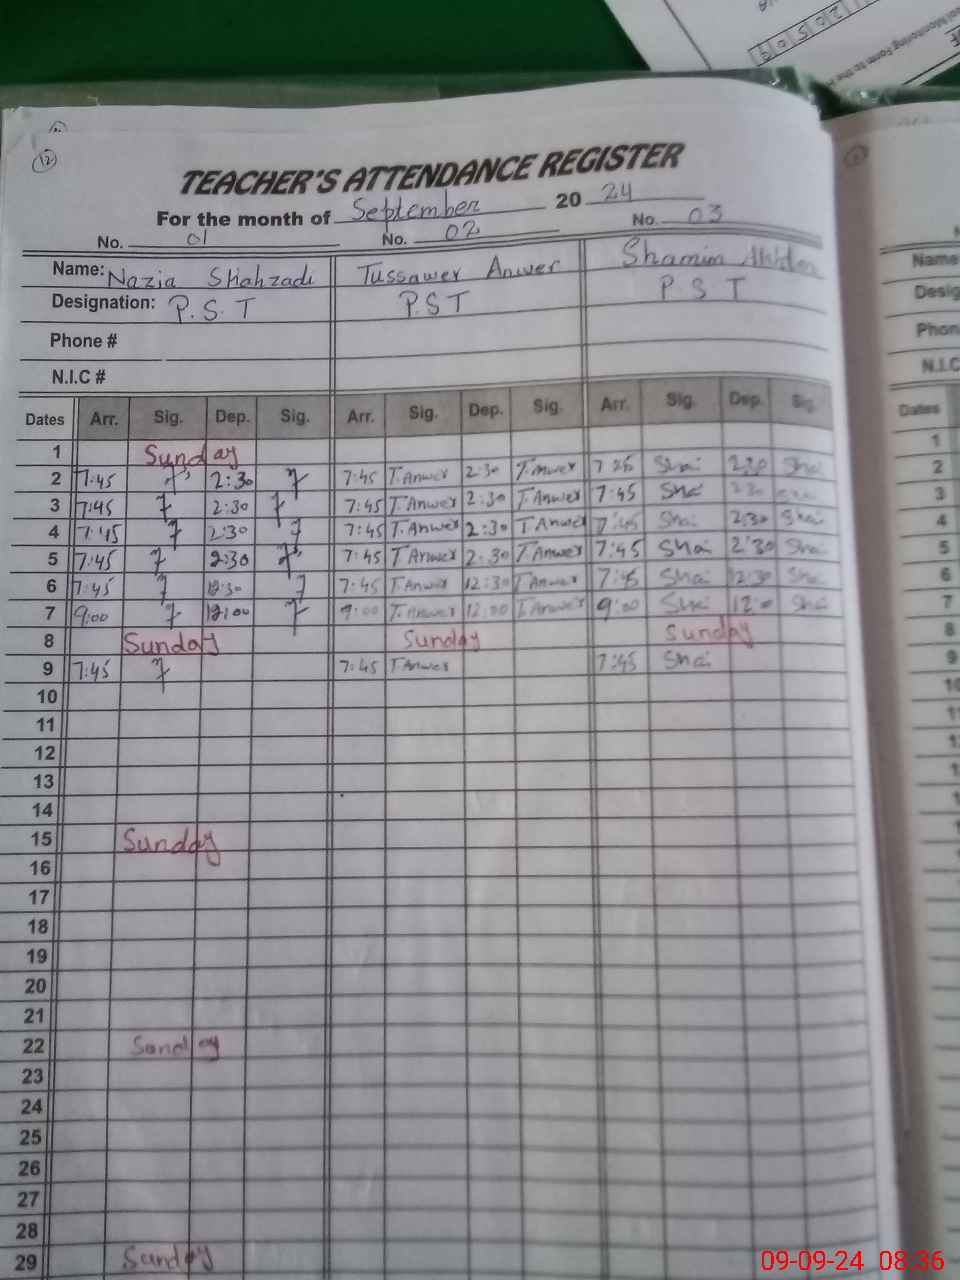 12
TEACHER'S ATTENDANCE REGISTER
For the month of September 20 24
No. 01 No. 02 No. 03
Name: Nazia Shahzadi Tussawer Anwer Shamim Akhter
Designation: P.S.T P.ST P S T
Phone #
N.I.C #
Dates Arr. Sig. Dep. Sig. Arr. Sig. Dep. Sig. Arr. Sig. Dep. Sig.
1 Sunday
2 7:45 2:30 7:45 T.Anwer 2:30 T.Anwer Sha
3 7:45 2:30 7:45 T.Anwer 2:30 T.Anwer 7:45 Sha 2:30
4 7:45 2:30 7:45 T.Anwer 2:30 T Anwer 7:45 Sha 2:30 Sha
5 7:45 2:30 7:45 T.Anwer 2:30 T.Anwer 7:45 Sha 2:30 Sha
6 7:45 12:30 7:45 T.Anwer 12:30 T.Anwer 7:45 Sha 12:30 Sha
7 9:00 12:00 9:00 T.Anwer 12:00 T.Anwer 9:00 Sha 12:0 Sha
8 Sunday Sunday Sunday
9 7:45 7:45 T.Anwer 7:45 Sha
10
11
12
13
14
15 Sunday
16
17
18
19
20
21
22 Sunday
23
24
25
26
27
28
29 Sunday
Name
Desig
Phon
N.I.C
Dates
1
2
3
4
5
6
7
8
9
10
09-09-24 08:36